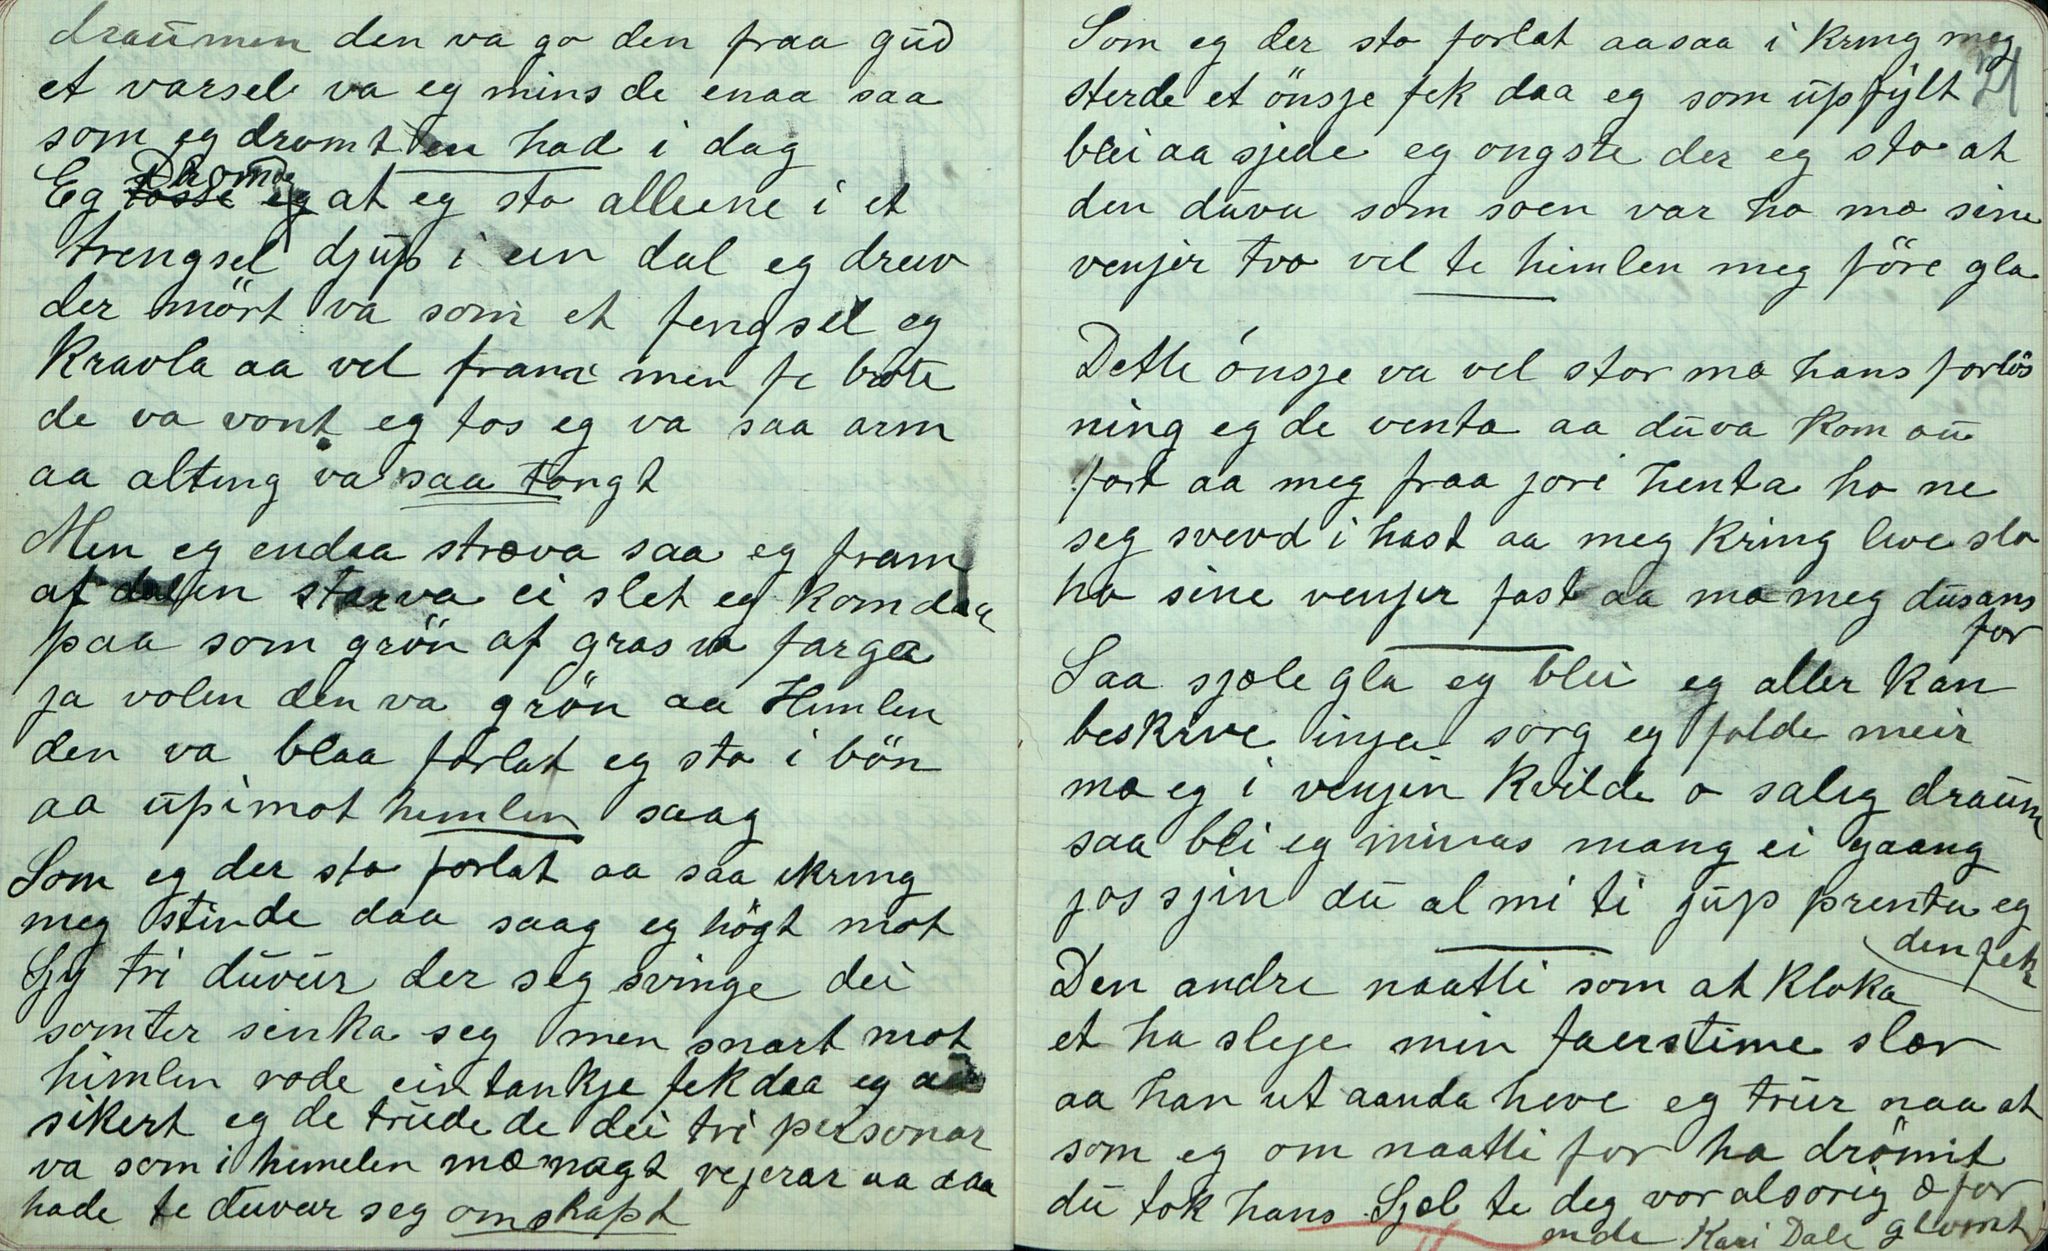 draumen den va go den fraa gud
et varsel va eg mins de enaa saa
som eg dromt en had i dag
Eg Drømde at eg sto alleene i et
trengsel djup i ein dal eg dreiv
der mört va som et fengsel eg
Kravla aa vel fram men fe brote
de va vont eg tos eg va saa arm
aa alting va saa tongt
Men eg endaa stræva saa eg fram
af dalen starva ei slet eg kom daa
paa som grön af gras va farga
ja volen den va grön aa Himlen
den va blaa forlat eg sto i bön
aa upimot himlen saag
Som eg der sto forlat aa saa ikring
meg stinde daa saag eg högt mot
Sjy tri duvur der seg svinge dei
somter sinka seg men snart mot
himlen rode ein tankje fek daa eg aa
sikert eg de trude de dei tri personar
va som i himelen mæ magt rejerar aa daa
hade te duvur seg omskapt
Som eg der sto forlat aasaa i kring meg
21
sterde et önsje fek daa eg som upfylt
blei aa sjede eg ongste der eg sto at
den duva som soen var ho mæ sine
venjer tvo vil te himlen meg före gla
Dette önsje va vel stor mæ hans forlös
ning eg de venta aa duva kom au
fort aa meg fraa jori henta ho ne
seg svevd i hast aa meg kring live slo
ho sine venjer fast aa mæ meg dusans
for
Saa sjæle gla eg blei eg aller kan
beskrive injen sorg eg folde meir
mæ eg i venjin kvilde o salig draum
saa bli eg minas mang ei gaang
jos sjin du al mi ti jup prenta eg
den fek
Den andre naatti som at kloka
et ha sleje min faers time slær
aa han ut aanda heve eg trur naa at
som eg om naatti for ha drömt
du tok hans Sjæl te deg vor alsorig æ for
mde Kari Dale glömt